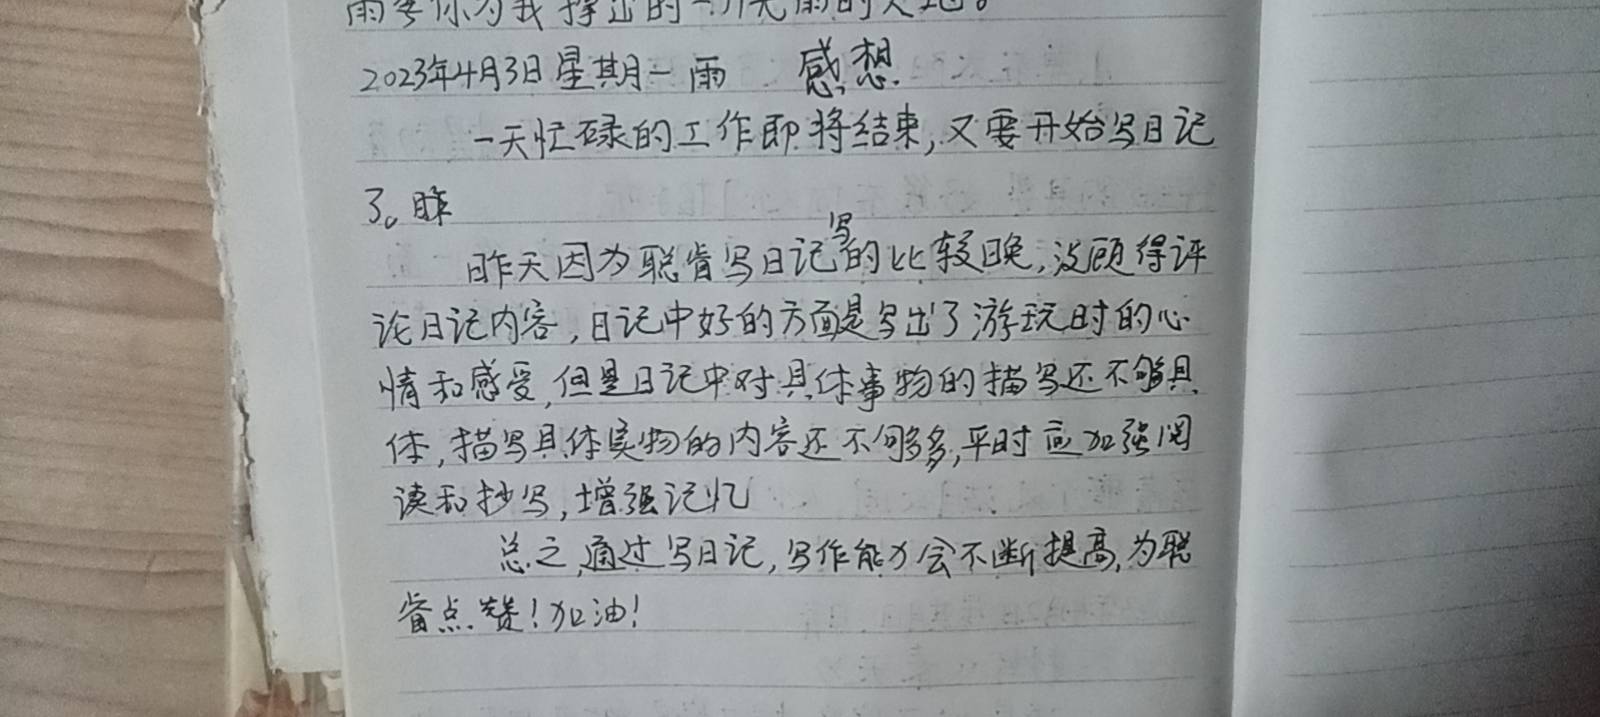 雨等你为我撑出的一片无雨的天地。
2023年4月3日星期一 雨 感想
一天忙碌的工作即将结束,又要开始写日记
了。昨
昨天因为聪睿写日记写的比较晚,没顾得评
论日记内容,日记中好的方面是写出了游玩时的心
情和感受,但是日记中对具体事物的描写还不够具
体,描写具体实物的内容还不够多,平时应加强阅
读和抄写,增强记忆
总之,通过写日记,写作能力会不断提高,为聪
睿点赞!加油!